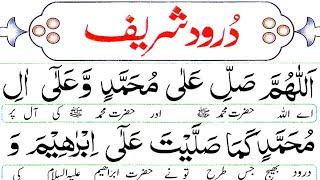 دُرود شریف
اَللّٰهُمَّ صَلِّ عَلٰی مُحَمَّدٍ وَّعَلٰٓی اٰلِ
اے اللہ حضرت محمد ﷺ اور حضرت محمد ﷺ کی آل پر
مُحَمَّدٍ کَمَا صَلَّیْتَ عَلٰٓی اِبْرٰهِیْمَ وَ
درود بھیج جس طرح تونے حضرت ابراھیم علیہ السلام کی